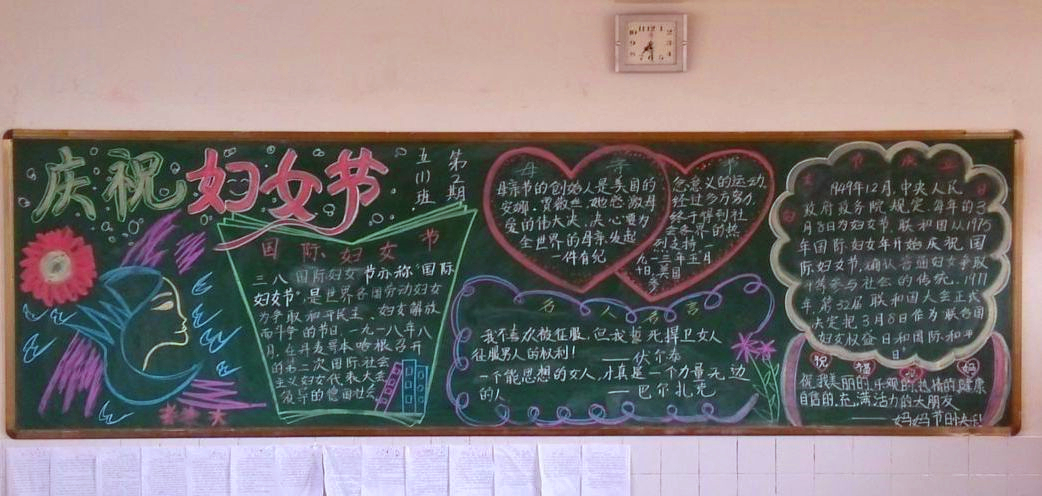 庆祝妇女节
五(1)班
第2期
国际妇女节
三八国际妇女节亦称"国际
妇女节",是世界各国劳动妇女
为争取和平民主、妇女解放
而斗争的节日,一九一八年八
月,在丹麦哥本哈根召开
的第二次国际社会
主义妇女代表大会
领导的德国社会
母亲节
母亲节的创始人是美国的
安娜·贾薇丝,她感激母
爱的伟大决,决心要为
全世界的母亲发起
一件有纪
念意义的运动,
经过多方努力,
终于得到社
会各界的热
烈支持,一
九一三年五月
十日,美国
名人名言
我不喜欢被征服,但我誓死捍卫女人
征服男人的权利!
——伏尔泰
一个能思想的女人,才真是一个力量无边
的人
——巴尔扎克
1949年12月,中央人民
政府政务院规定:每年的3
月8日为妇女节,联和国从1975
年国际妇女年开始庆祝国
际妇女节,确认普通妇女争取
平等参与社会的传统.1977
年,第32届联和国大会正式
决定把3月8日作为联合国
妇女权益日和国际和平
日
祝福 妈
祝我美丽的,乐观的,热情的,健康
自信的,充满活力的大朋友
——妈妈节日快乐!